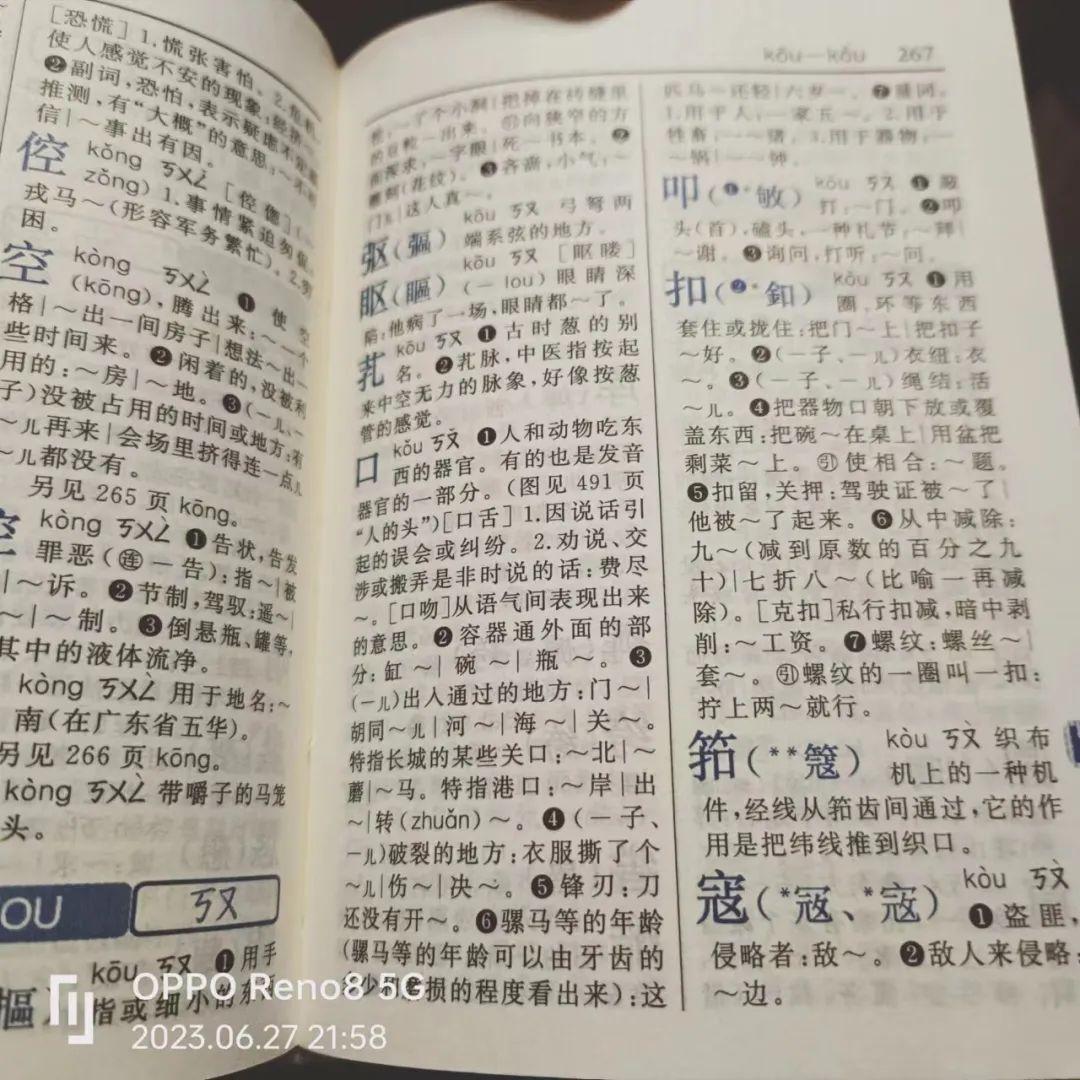 [恐慌] 1.慌张害怕。2.危机,
使人感觉不安的现象:经济~。
❷副词,恐怕,表示疑虑不定或
推测,有“大概”的意思:~不可
信|~事出有因。
倥 kǒng ㄎㄨㄥˇ [倥偬](-
zǒng) 1.事情紧迫匆促:
戎马~(形容军务繁忙)。2.穷
困。
空 kòng ㄎㄨㄥˋ ❶使空
(kōng),腾出来:~一个
格|~出一间房子|想法~出一
些时间来。❷闲着的,没被利
用的:~房|~地。❸(-儿、-
子)没被占用的时间或地方:有
~儿再来|会场里挤得连一点儿
~儿都没有。
另见 265 页 kōng。
kòng ㄎㄨㄥˋ ❶告状,告发
罪恶(连-告):指~|被
|~诉。❷节制,驾驭:遥~|
~|~制。❸倒悬瓶、罐等,
其中的液体流净。
kòng ㄎㄨㄥˋ 用于地名:~
南(在广东省五华)。
另见 266 页 kōng。
kòng ㄎㄨㄥˋ 带嚼子的马笼
头。
OU ㄎㄡ
kōu ㄎㄡ ❶用手
指或细小的东西
kōu—kòu 267
~了个小洞|把掉在砖缝里
的豆粒~出来。引向狭窄的方
面深求:~字眼|死~书本。❷
雕刻(花纹)。❸吝啬,小气:~
门儿|这人真~。
𫸩(彄) kōu ㄎㄡ 弓弩两
端系弦的地方。
眍(瞘) kōu ㄎㄡ [眍䁖]
(-lou)眼睛深
陷:他病了一场,眼睛都~了。
芤 kōu ㄎㄡ ❶古时葱的别
名。❷芤脉,中医指按起
来中空无力的脉象,好像按葱
管的感觉。
口 kǒu ㄎㄡˇ ❶人和动物吃东
西的器官。有的也是发音
器官的一部分。(图见 491 页
“人的头”)[口舌] 1.因说话引
起的误会或纠纷。2.劝说、交
涉或搬弄是非时说的话:费尽
~。[口吻]从语气间表现出来
的意思。❷容器通外面的部
分:缸~|碗~|瓶~。❸
(-儿)出入通过的地方:门~|
胡同~儿|河~|海~|关~。
特指长城的某些关口:~北|~
蘑|~马。特指港口:~岸|出
~|转(zhuǎn)~。❹(-子、
-儿)破裂的地方:衣服撕了个
~儿|伤~|决~。❺锋刃:刀
还没有开~。❻骡马等的年龄
(骡马等的年龄可以由牙齿的
多少和磨损的程度看出来):这
匹马~还轻|六岁~。❼量词。
1.用于人:一家五~。2.用于
牲畜:一~猪。3.用于器物:一
~锅|一~钟。
叩(❶*敂) kòu ㄎㄡˋ ❶敲
打:~门。❷叩
头(首),磕头,一种礼节:~拜|
~谢。❸询问,打听:~问。
扣(❷*釦) kòu ㄎㄡˋ ❶用
圈、环等东西
套住或拢住:把门~上|把扣子
~好。❷(-子、-儿)衣纽:衣
~。❸(-子、-儿)绳结:活
~儿。❹把器物口朝下放或覆
盖东西:把碗~在桌上|用盆把
剩菜~上。引使相合:~题。
❺扣留,关押:驾驶证被~了|
他被~了起来。❻从中减除:
九~(减到原数的百分之九
十)|七折八~(比喻一再减
除)。[克扣]私行扣减,暗中剥
削:~工资。❼螺纹:螺丝~|
套~。引螺纹的一圈叫一扣:
拧上两~就行。
筘(**簆) kòu ㄎㄡˋ 织布
机上的一种机
件,经线从筘齿间通过,它的作
用是把纬线推到织口。
寇(*冦、*宼) kòu ㄎㄡˋ
❶盗匪,
侵略者:敌~。❷敌人来侵略:
~边。
OPPO Reno8 5G
2023.06.27 21:58